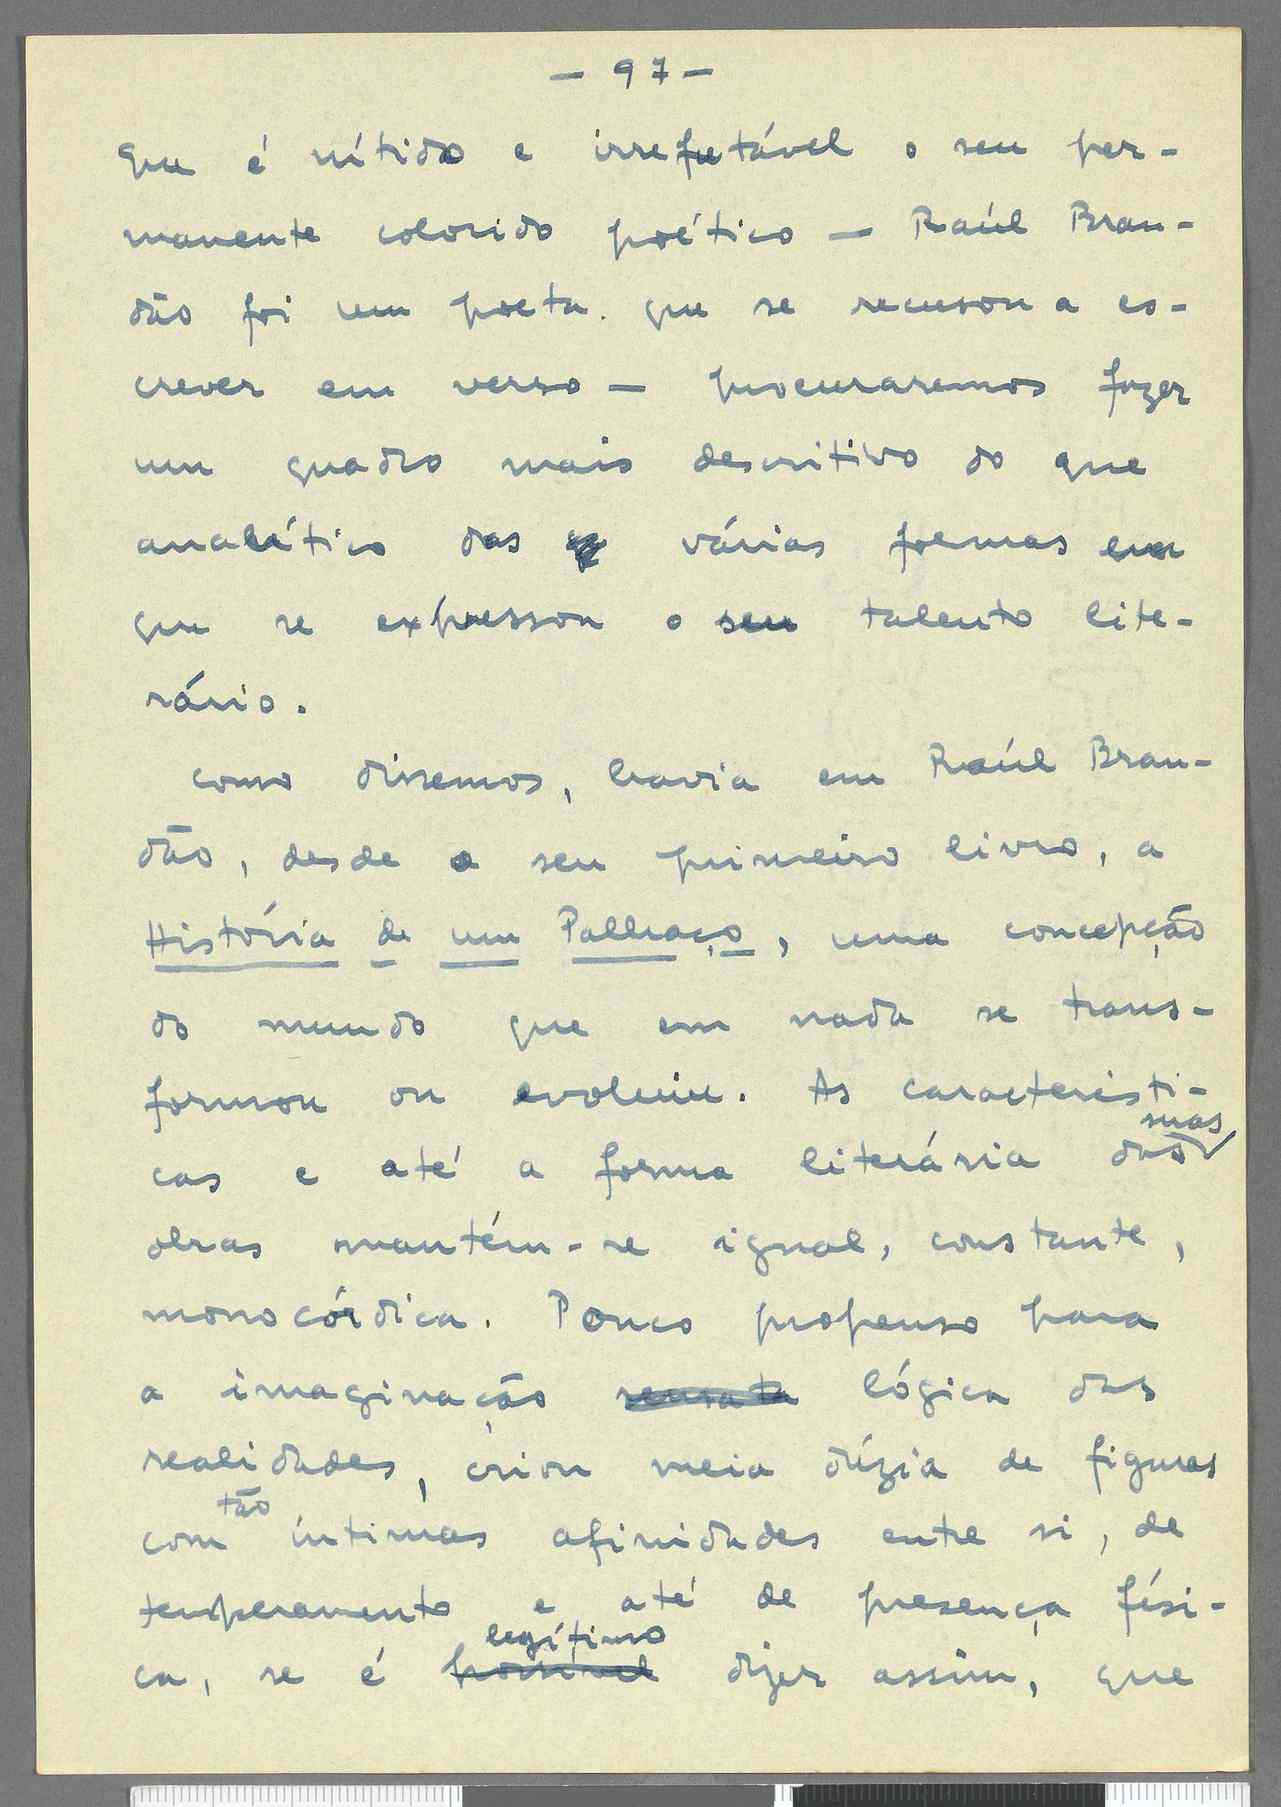 — 97 —
que é nítido e irrefutável o seu per-
manente colorido poético — Raúl Bran-
dão foi um poeta que se recusou a es-
crever em verso — procuraremos fazer
um quadro mais descritivo do que
analítico das várias formas em
que se expressou o seu talento lite-
rário.
Como dissemos, havia em Raúl Bran-
dão, desde o seu primeiro livro, a
História de um Palhaço, uma concepção
do mundo que em nada se trans-
formou ou evoluiu. As característi-
suas
cas e até a forma literária das
obras mantém-se igual, constante,
monocórdica. Pouco propenso para
a imaginação sensata lógica das
realidades, criou meia dúzia de figuras
tão
com íntimas afinidades entre si, de
temperamento e até de presença físi-
legítimo
ca, se é possível dizer assim, que